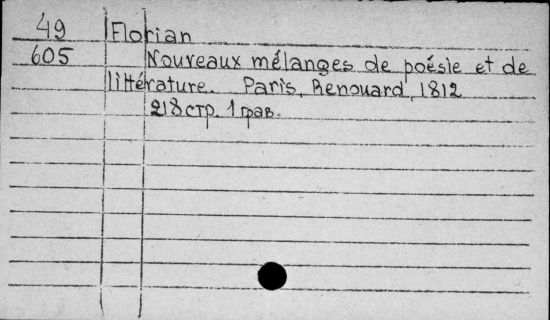 49 Florian
605 Nouveaux mélanges de poésie et de
littérature. Paris, Renouard, 1812
218 стр. 1 грав.